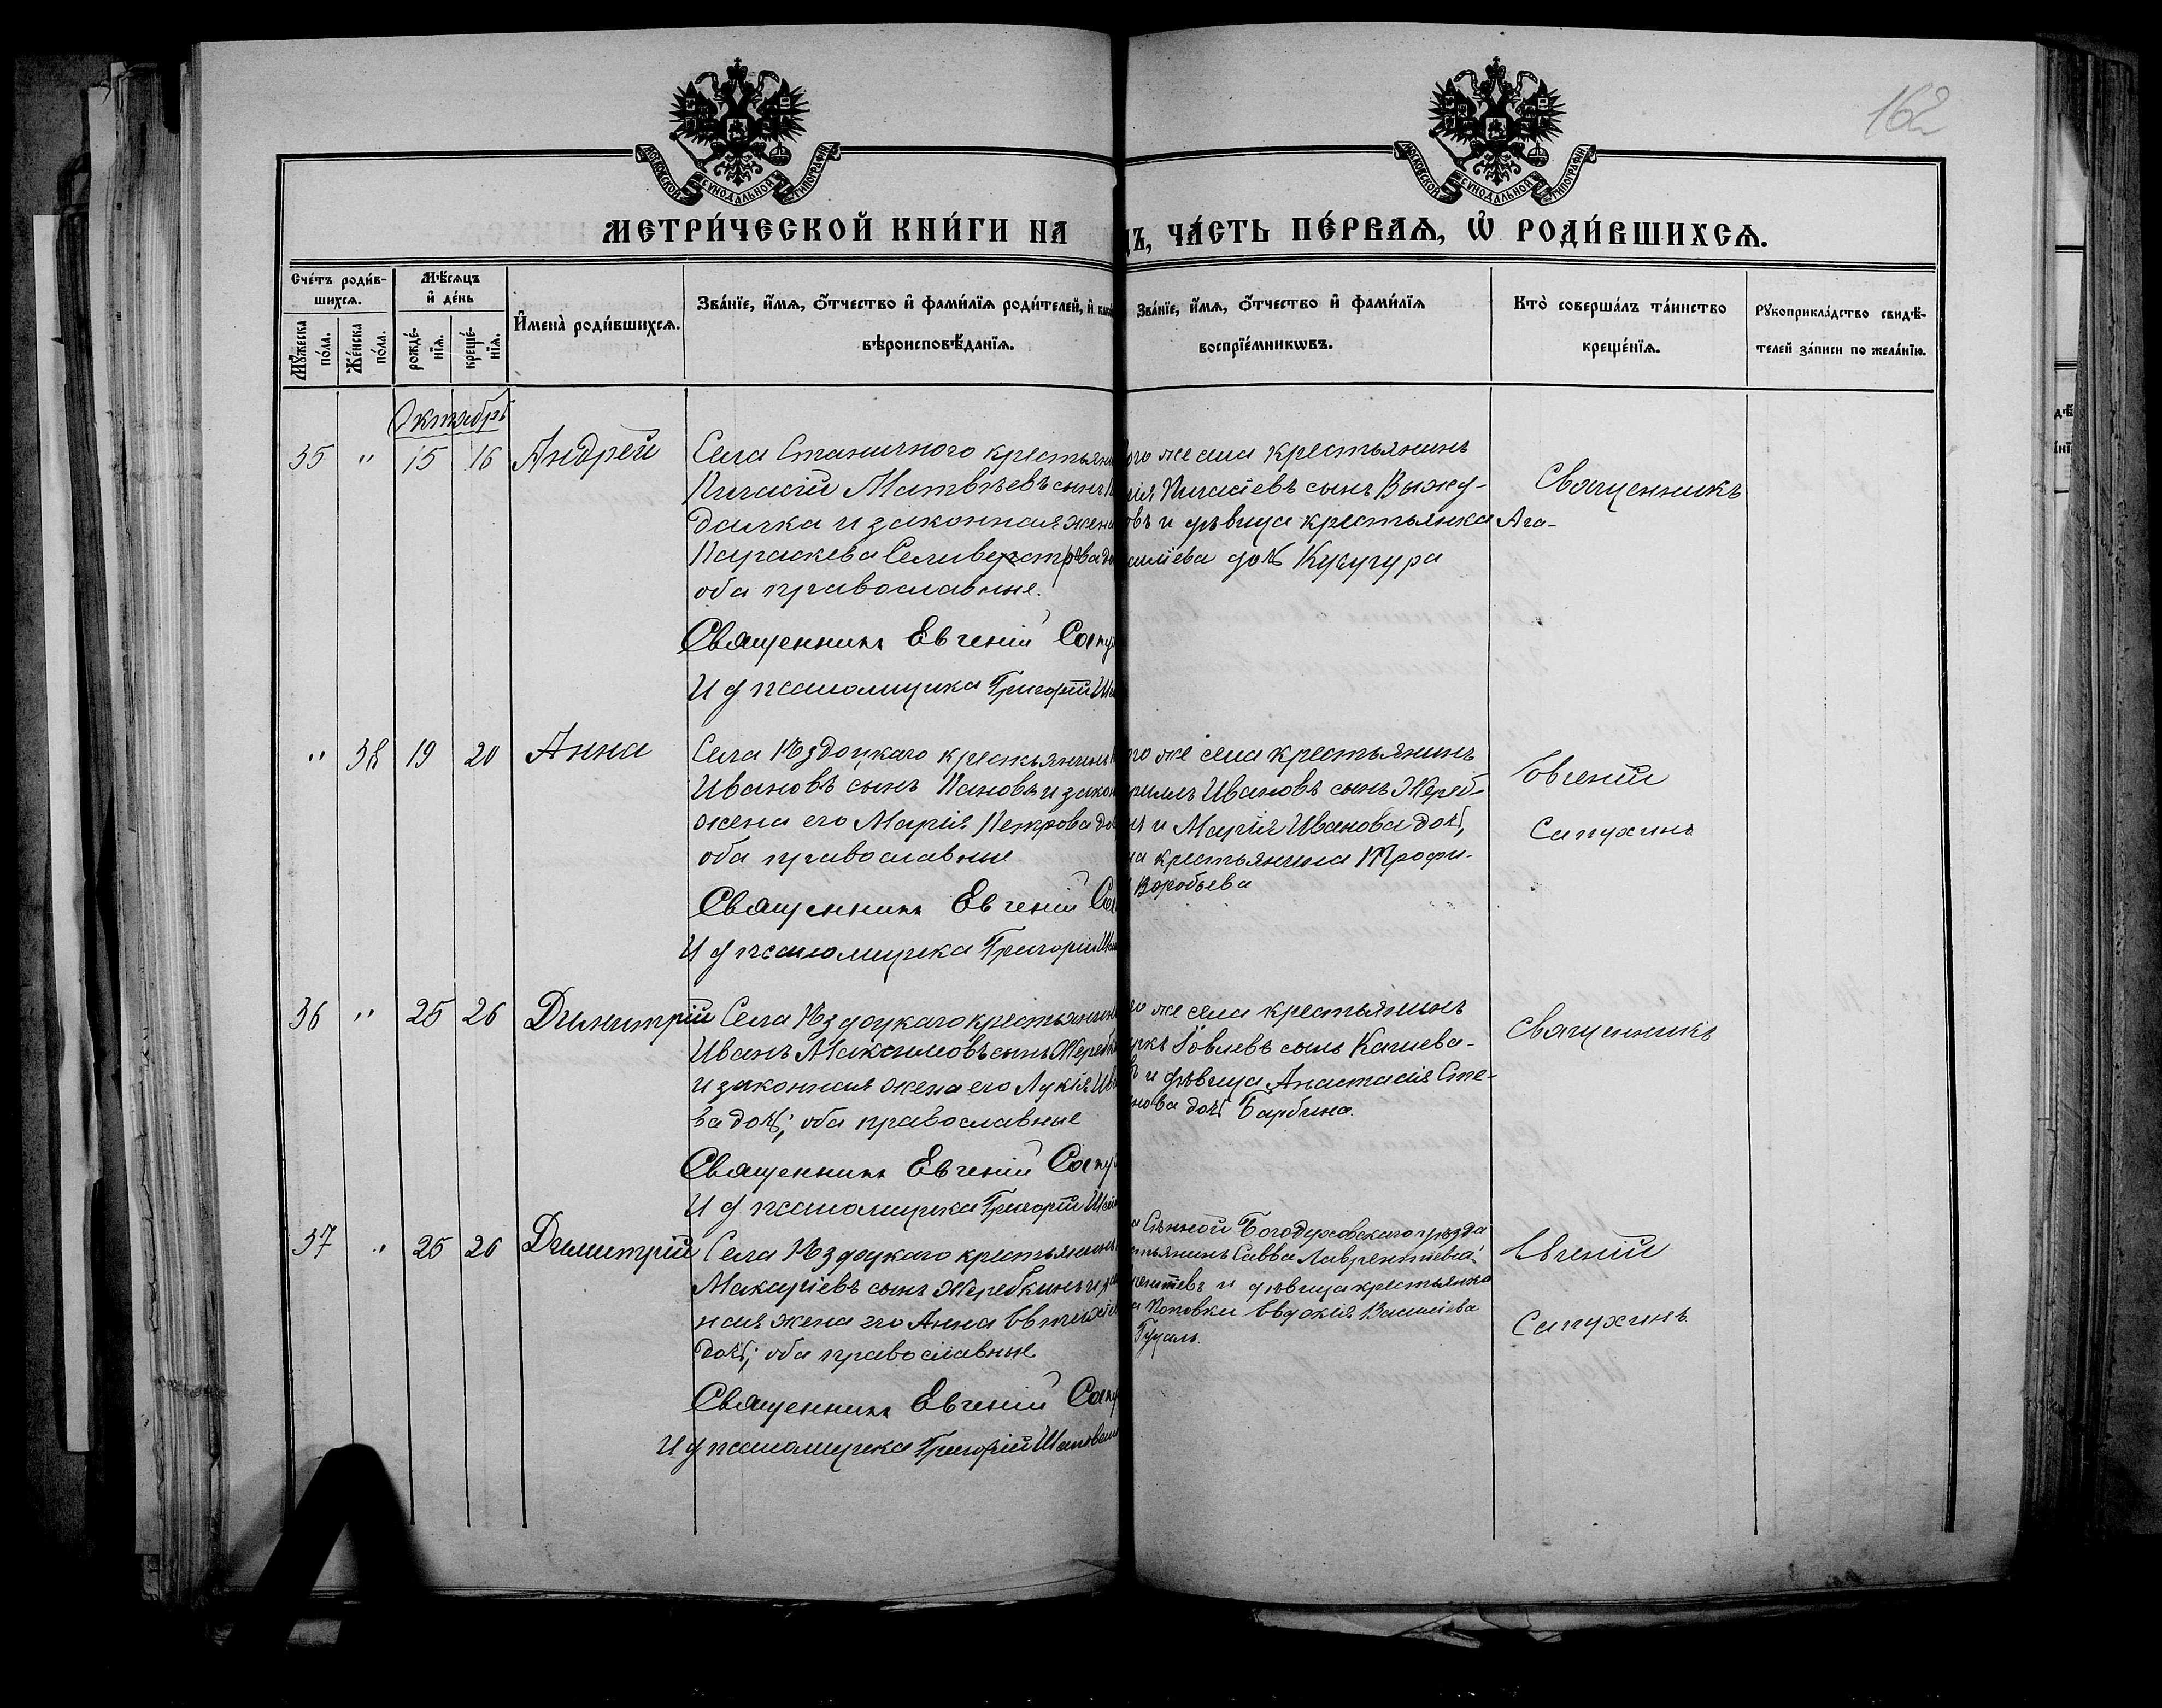 162
МОСКОВСКОЙ СѴНОДАЛЬНОЙ ТИПОГРАФІИ
МОСКОВСКОЙ СѴНОДАЛЬНОЙ ТИПОГРАФІИ
МЕТРИ́ЧЕСКОЙ КНИ́ГИ НА
ДЪ, ЧА́СТЬ ПЕ́РВАѦ, Ѡ РОДИ́ВШИХСѦ.
Сче́тъ роди́в-
шихсѧ.
Мѣ́сѧцъ
и҆ де́нь
Мꙋ́жеска по́ла.
Же́нска по́ла.
рожде́-
нїѧ.
креще́-
нїѧ.
И҆мена̀ роди́вшихсѧ.
Зва́нїе, и҆́мѧ, ѻ҆́тчество и҆ фами́лїѧ роди́телей, и҆
вѣроисповѣ́данїѧ.
Зва́нїе, и҆́мѧ, ѻ҆́тчество и҆ фами́лїѧ
воспрїе́мникѡвъ.
Кто̀ соверша́лъ та́инство
креще́нїѧ.
Рꙋкоприкла́дство свидѣ́-
телей за́писи по жела́нїю.
Октябрь
35 " 15 16 Андрей
Села Станичного крестьяни
Матвѣевъ сынъ
и законная жена
Параскева Селиверстрова до
оба православные.
Священникъ Евгеній Сапу
И д псаломщика Григорій Ша
ого же села крестьянинъ
сынъ Выжу-
овъ и дѣвица крестьянка Ага-
дочь Кукугура
Священникъ
" 38 19 20 Анна
Села Ѣздоцкаго крестьянинъ
Ивановъ сынъ Пановъ и закон
жена его Марія Петрова до
оба православные
Священникъ Евгеній Са
И д псаломщика Григорій Ша
го же села крестьянинъ
риллъ Ивановъ сынъ Жереб-
и Марія Иванова дочь,
на крестьянина Трофи-
Воробьева
Евгеній
Сапухинъ
36 " 25 26 Димитрій
Села Ѣздоцкаго крестьянин
Иванъ Максимовъ сынъ Жеребк
и законная жена его Лукія Ив
ва дочь; оба православные
Священникъ Евгеній Сапу
И д псаломщика Григорій Ша
го же села крестьянинъ
Іовлевъ сынъ
и дѣвица Анастасія Сте-
нова дочь Барбина.
Священникъ
37 " 25 26 Димитрій
Села Ѣздоцкаго крестьянинъ
Макаріевъ сынъ Жеребкинъ и за
ная жена его Анна Евтихіе
дочь; оба православные
Священникъ Евгеній Сапу
И д псаломщика Григорій Шапова
Сѣнной Богодуховскаго уѣзда
стьянинъ Савва Лаврентіевъ
и дѣвица крестьянка
Поповки Евдокія Василіева
Евгеній
Сапухинъ